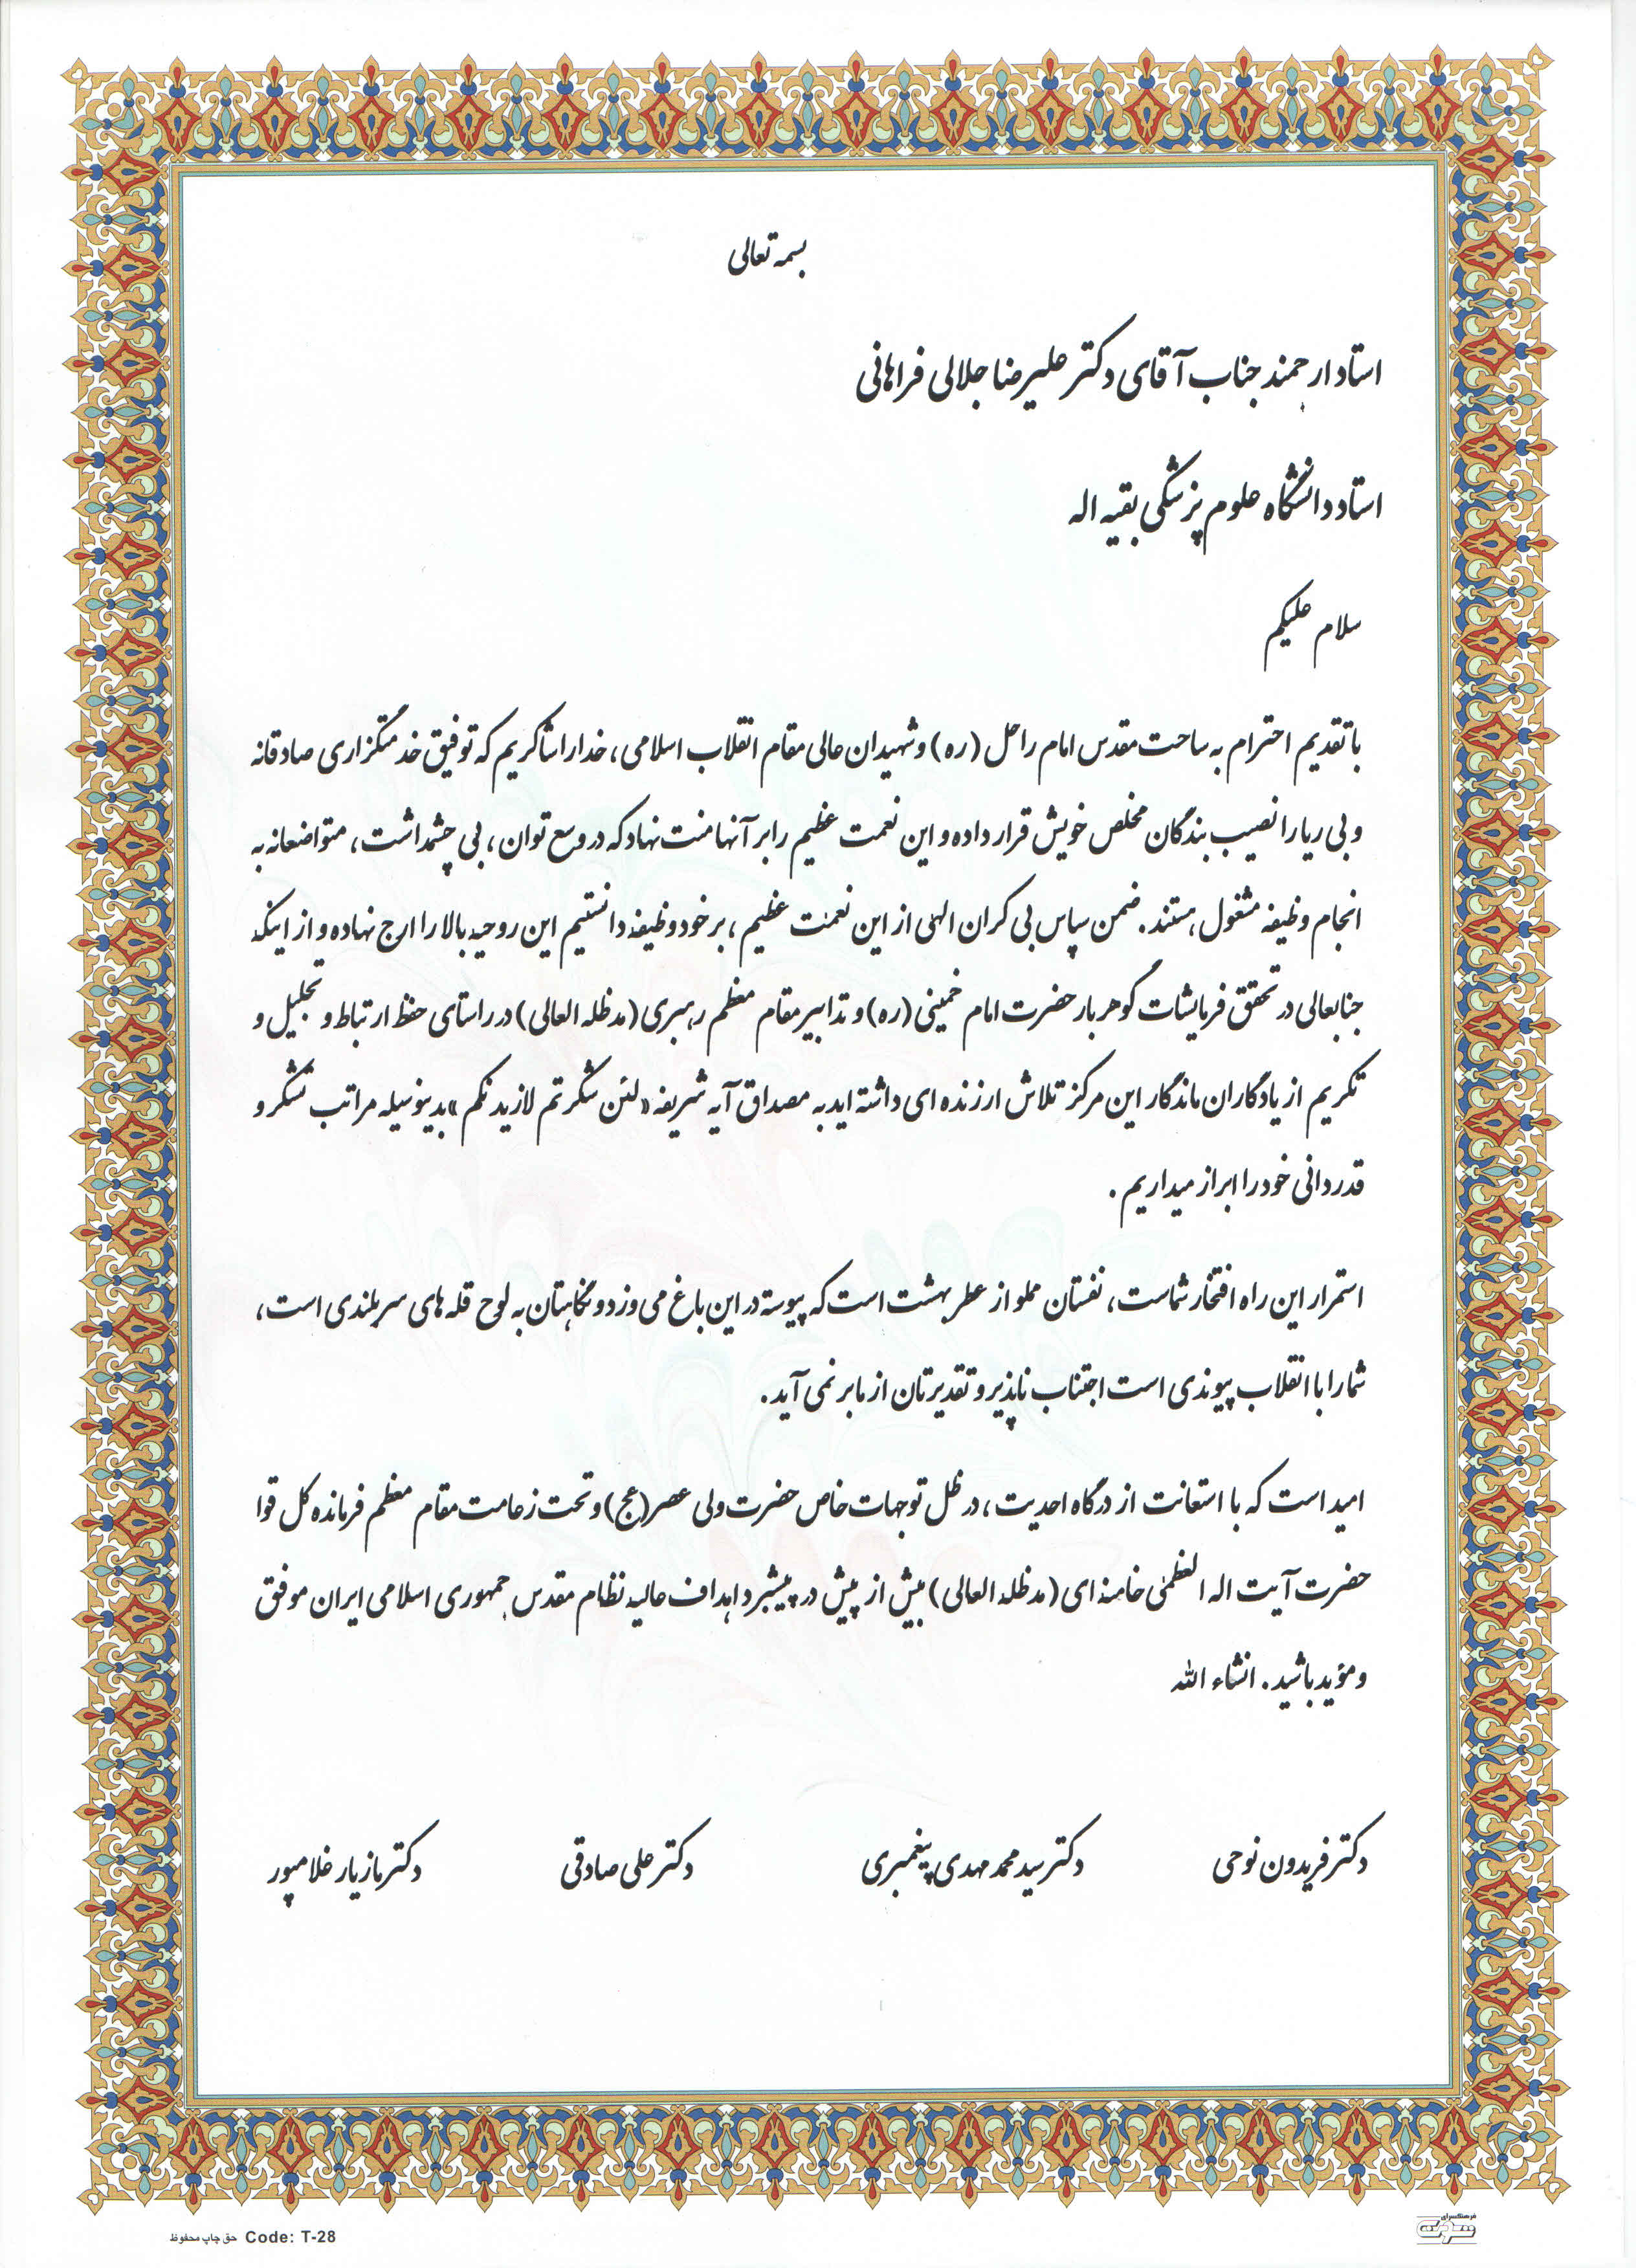 بسمه تعالی
استاد ارجمند جناب آقای دکتر علیرضا جلالی فراهانی
استاد دانشگاه علوم پزشکی بقیه اله
سلام علیکم
با تقدیم احترام به ساحت مقدس امام راحل (ره) و شهیدان عالی مقام انقلاب اسلامی، خدا را شاکریم که توفیق خدمتگزاری صادقانه
و بی ریا را نصیب بندگان مخلص خویش قرار داده و این نعمت عظیم را بر آنها منت نهاد که در وسع توان، بی چشمداشت، متواضعانه به
انجام وظیفه مشغول هستند. ضمن سپاس بی کران الهی از این نعمت عظیم، بر خود وظیفه دانستیم این روحیه بالا را ارج نهاده و از اینکه
جنابعالی در تحقق فرمایشات گوهربار حضرت امام خمینی (ره) و تدابیر مقام معظم رهبری (مدظله العالی) در راستای حفظ ارتباط و تجلیل و
تکریم از یادگاران ماندگار این مرکز تلاش ارزنده ای داشته اید به مصداق آیه شریفه «لئن شکرتم لازیدنکم» بدینوسیله مراتب تشکر و
قدردانی خود را ابراز میداریم.
استمرار این راه افتخار شماست، نفستان مملو از عطر بهشت است که پیوسته در این باغ می وزد و نگاهتان به لوح قله های سربلندی است،
شما را با انقلاب پیوندی است اجتناب ناپذیر و تقدیرتان از ما بر نمی آید.
امید است که با استعانت از درگاه احدیت، در ظل توجهات خاص حضرت ولی عصر (عج) و تحت زعامت مقام معظم فرمانده کل قوا
حضرت آیت اله العظمی خامنه ای (مدظله العالی) بیش از پیش در پیشبرد اهداف عالیه نظام مقدس جمهوری اسلامی ایران موفق
و مؤید باشید. انشاء الله
دکتر فریدون نوحی دکتر سید محمد مهدی پیغمبری دکتر علی صادقی دکتر مازیار غلامپور
حق چاپ محفوظ Code: T-28
فرهنگسرای